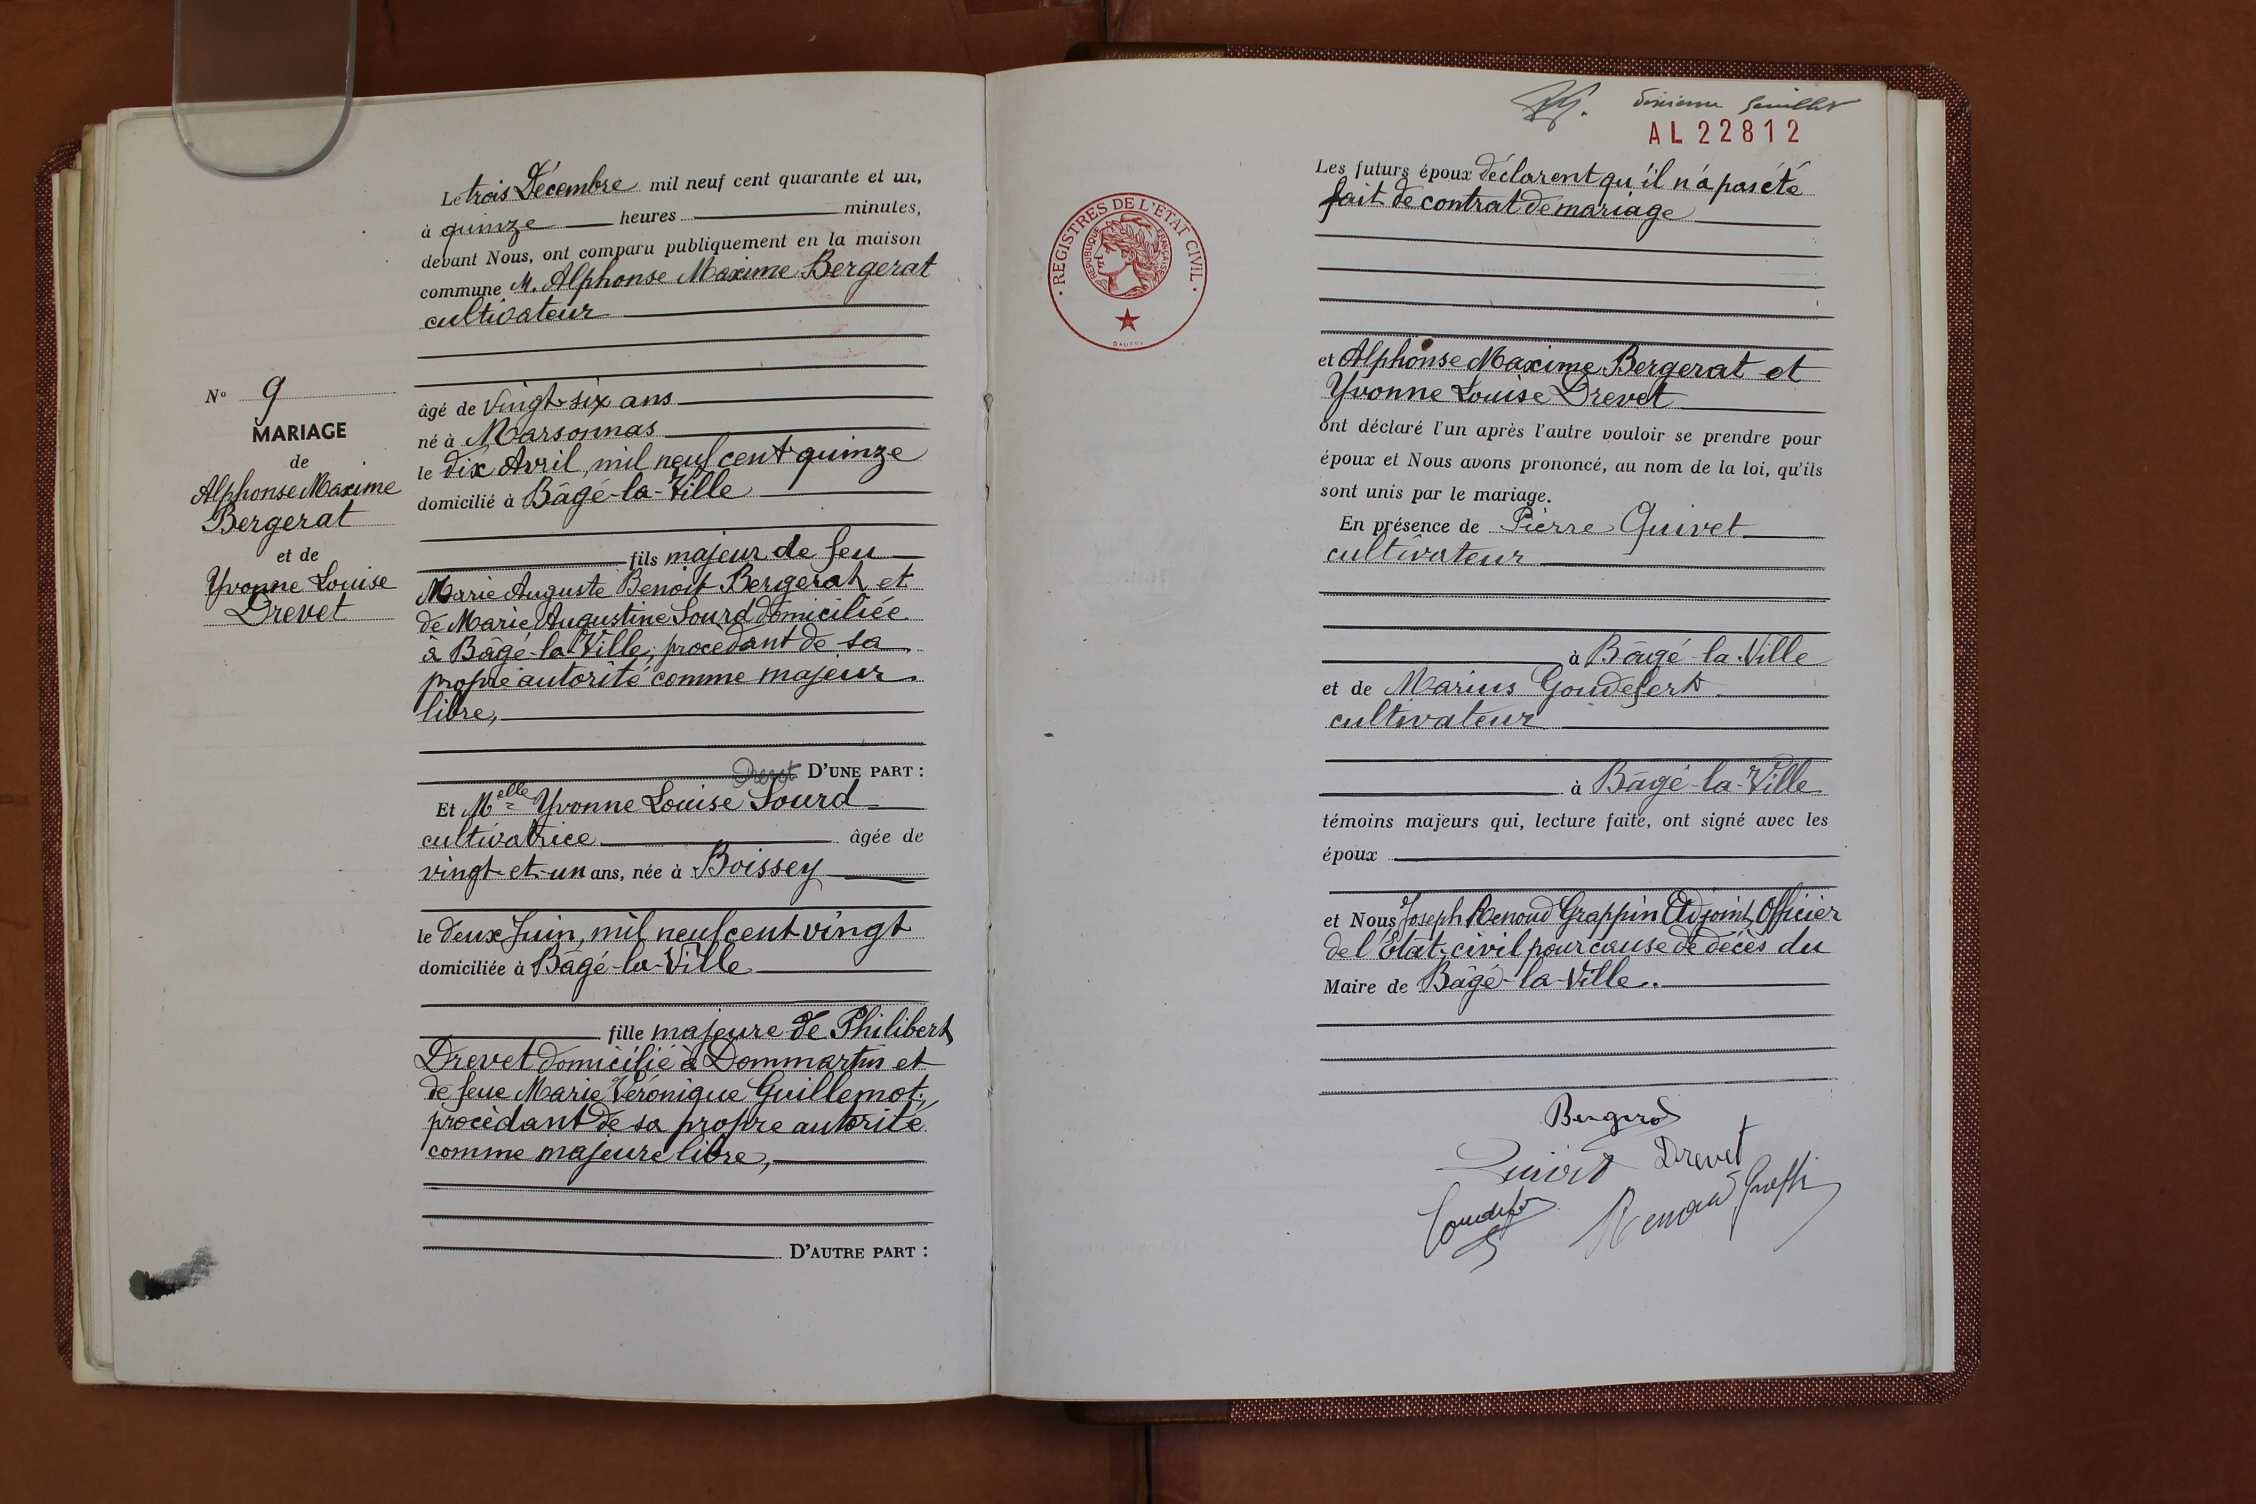 Le trois Décembre mil neuf cent quarante et un,
à quinze heures minutes,
devant Nous, ont comparu publiquement en la maison
commune M. Alphonse Maxime Bergerat
cultivateur
âgé de vingt-six ans
né à Marsonnas
le dix Avril, mil neuf cent quinze
domicilié à Bâgé-la-Ville
fils majeur de feu
Marie Auguste Benoit Bergerat et
de Marie Augustine Sourd domiciliée
à Bâgé-la-Ville, procédant de sa
propre autorité comme majeur
libre,
D'UNE PART :
Drevet
Et Melle Yvonne Louise Sourd
cultivatrice âgée de
vingt-et-un ans, née à Boissey
le deux Juin, mil neuf cent vingt
domiciliée à Bâgé-la-Ville
fille majeure de Philibert
Drevet domicilié à Dommartin et
de feue Marie Véronique Guillemot,
procédant de sa propre autorité
comme majeure libre,
D'AUTRE PART :
N° 9
MARIAGE
de
Alphonse Maxime
Bergerat
et de
Yvonne Louise
Drevet
feuillet
AL 22812
· REGISTRES DE L'ÉTAT CIVIL ·
RÉPUBLIQUE FRANÇAISE
Les futurs époux déclarent qu'il n'a pas été
fait de contrat de mariage
et Alphonse Maxime Bergerat et
Yvonne Louise Drevet
ont déclaré l'un après l'autre vouloir se prendre pour
époux et Nous avons prononcé, au nom de la loi, qu'ils
sont unis par le mariage.
En présence de Pierre Quivet
cultivateur
à Bâgé-la-Ville
et de Marius Goudefert
cultivateur
à Bâgé-la-Ville
témoins majeurs qui, lecture faite, ont signé avec les
époux
et Nous Joseph Renoud Grappin Adjoint, Officier
de l'Etat-civil pour cause de décès du
Maire de Bâgé-la-Ville.
Bergerat
Quivet Drevet
Renoud Grappin